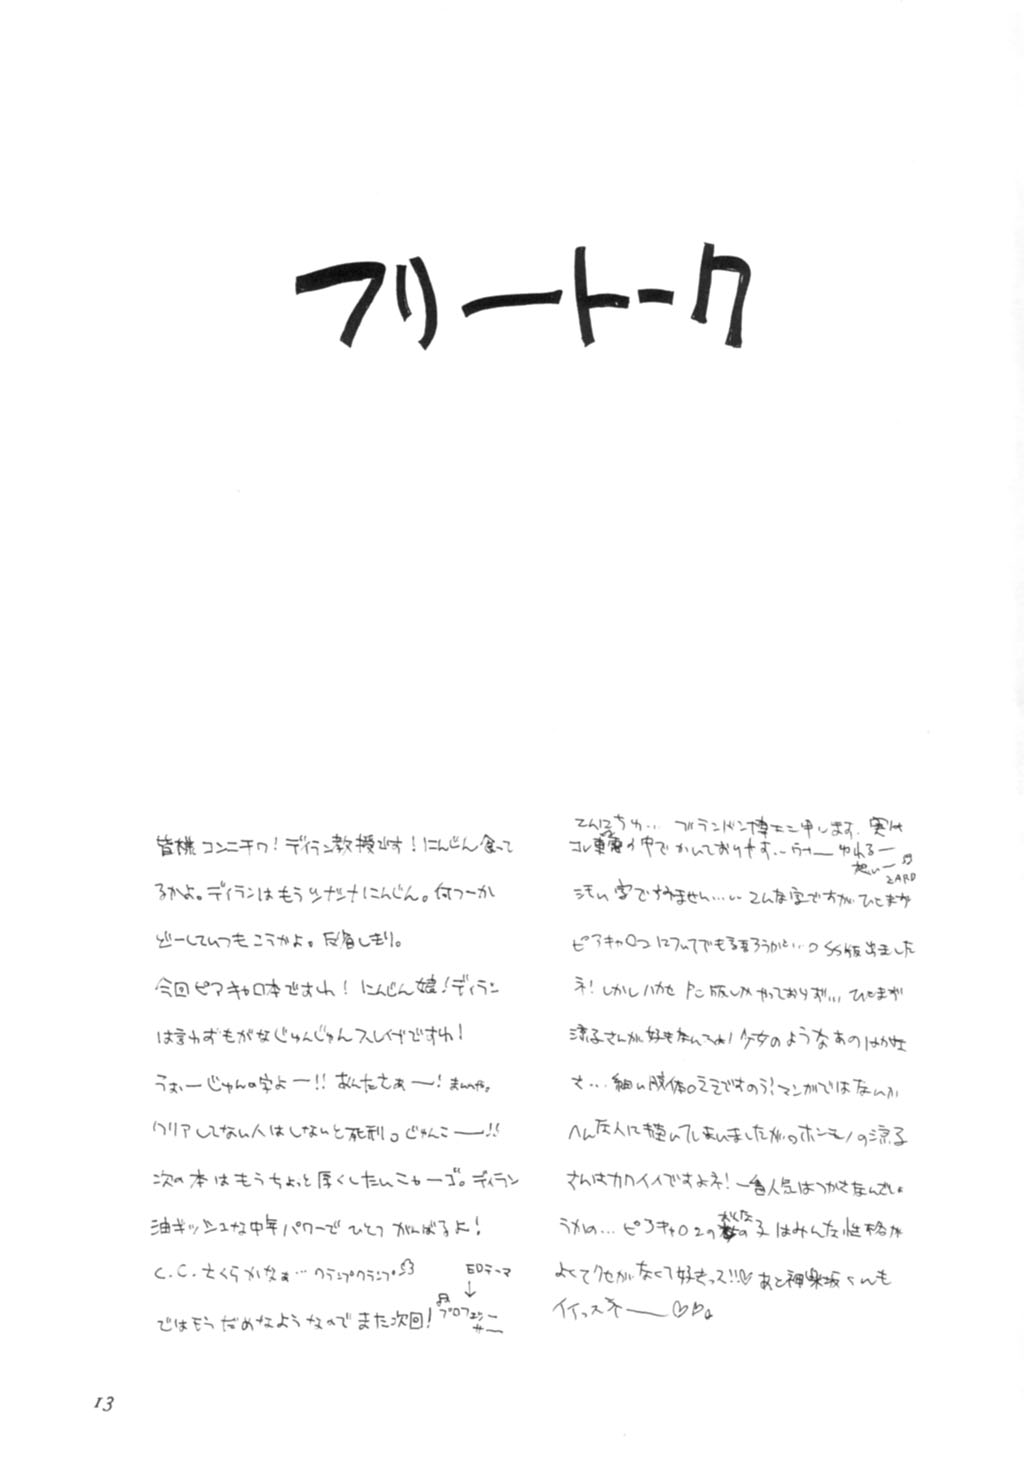 フリートーク
皆様コンニチワ!ディラン教授です!にんじん食って
るかよ。ディランはもうシナシナにんじん。何つーか
どーしていつもこうかよ。反省しまり。
今回ピアキャロ本ですわ!にんじん娘!ディラン
は言わずもがなじゅんじゅんスレイブですわ!
うぉーじゅんの字よー!!あんたさぁー!まんべや。
クリアしてない人はしないと死刑。じゅんこー!!
次の本はもうちょっと厚くしたいニャーゴ。ディラン
油ギッシュな中年パワーでひとつがんばるよ!
C.C.さくらかなぁ…クランプクランプ
EDテーマ
↓
ではもうだめなようなのでまた次回!♫プロフェッサー
こんにちわ… ブランドン博士と申します。実は
コレ車の中でかいております… ゆれるー
想いー♫
ZARD
汚い字ですみません…こんな字ですが、ひとまず
ピアキャロ2についてでも語ろうかと…。SS版出ました
ネ!しかしハカセPC版しかやっておらず… ひとまず
涼子さんが好きなんでね!少女のようなあのはかな
さ…細い肢体。ええですのう!マンガではないか
へんな人に描いてしまいましたが。ホンモノの涼子
さんはカワイイですよネ!一番人気はつかさなんでしょ
うかの…ピアキャロ2の女の子はみんな性格が
よくてクセがなくて好きっス!!♡あと神楽坂くんも
イイっスネー♡♡。
13